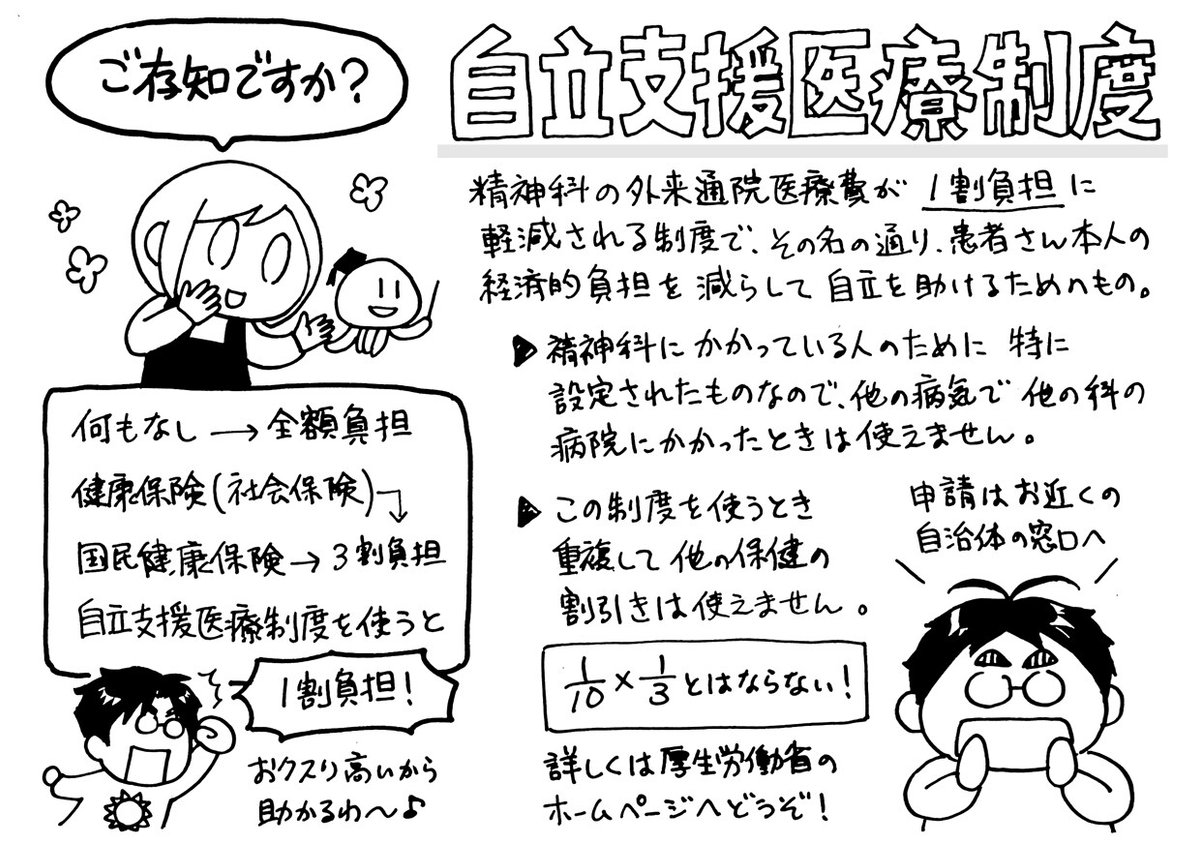 ご存知ですか?
自立支援医療制度
精神科の外来通院医療費が 1割負担に
軽減される制度で、その名の通り、患者さん本人の
経済的負担を減らして自立を助けるためのもの。
▶精神科にかかっている人のために 特に
設定されたものなので、他の病気で 他の科の
病院にかかったときは使えません。
▶この制度を使うとき
重複して他の保健の
割引きは使えません。
1/10×1/3とはならない!
詳しくは厚生労働省の
ホームページへどうぞ!
申請はお近くの
自治体の窓口へ
何もなし→全額負担
健康保険(社会保険)→
国民健康保険→3割負担
自立支援医療制度を使うと
1割負担!
おクスリ高いから
助かるわ〜♪